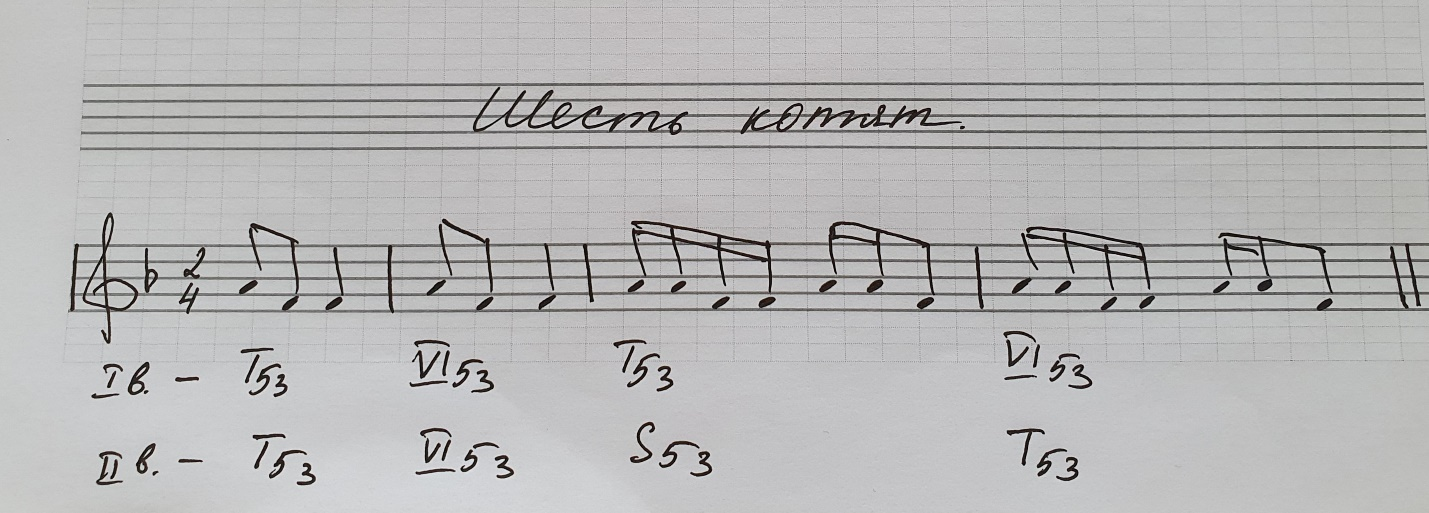 Шесть котят.
2
4
I в. – T53 VI53 T53 VI53
II в. – T53 VI53 S53 T53